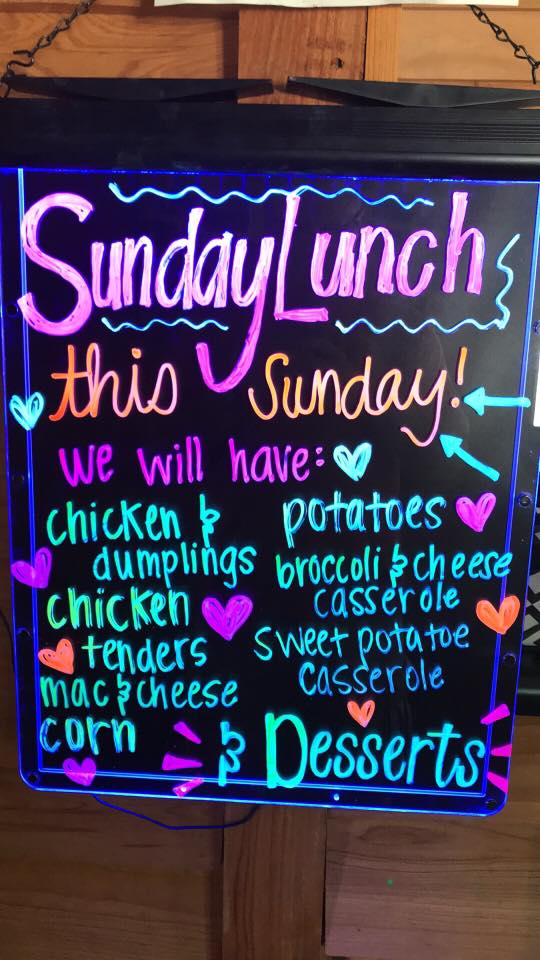 Sunday Lunch
this Sunday!
we will have:
chicken &
dumplings
chicken
tenders
mac & cheese
corn
potatoes
broccoli & cheese
casserole
sweet potatoe
casserole
& Desserts